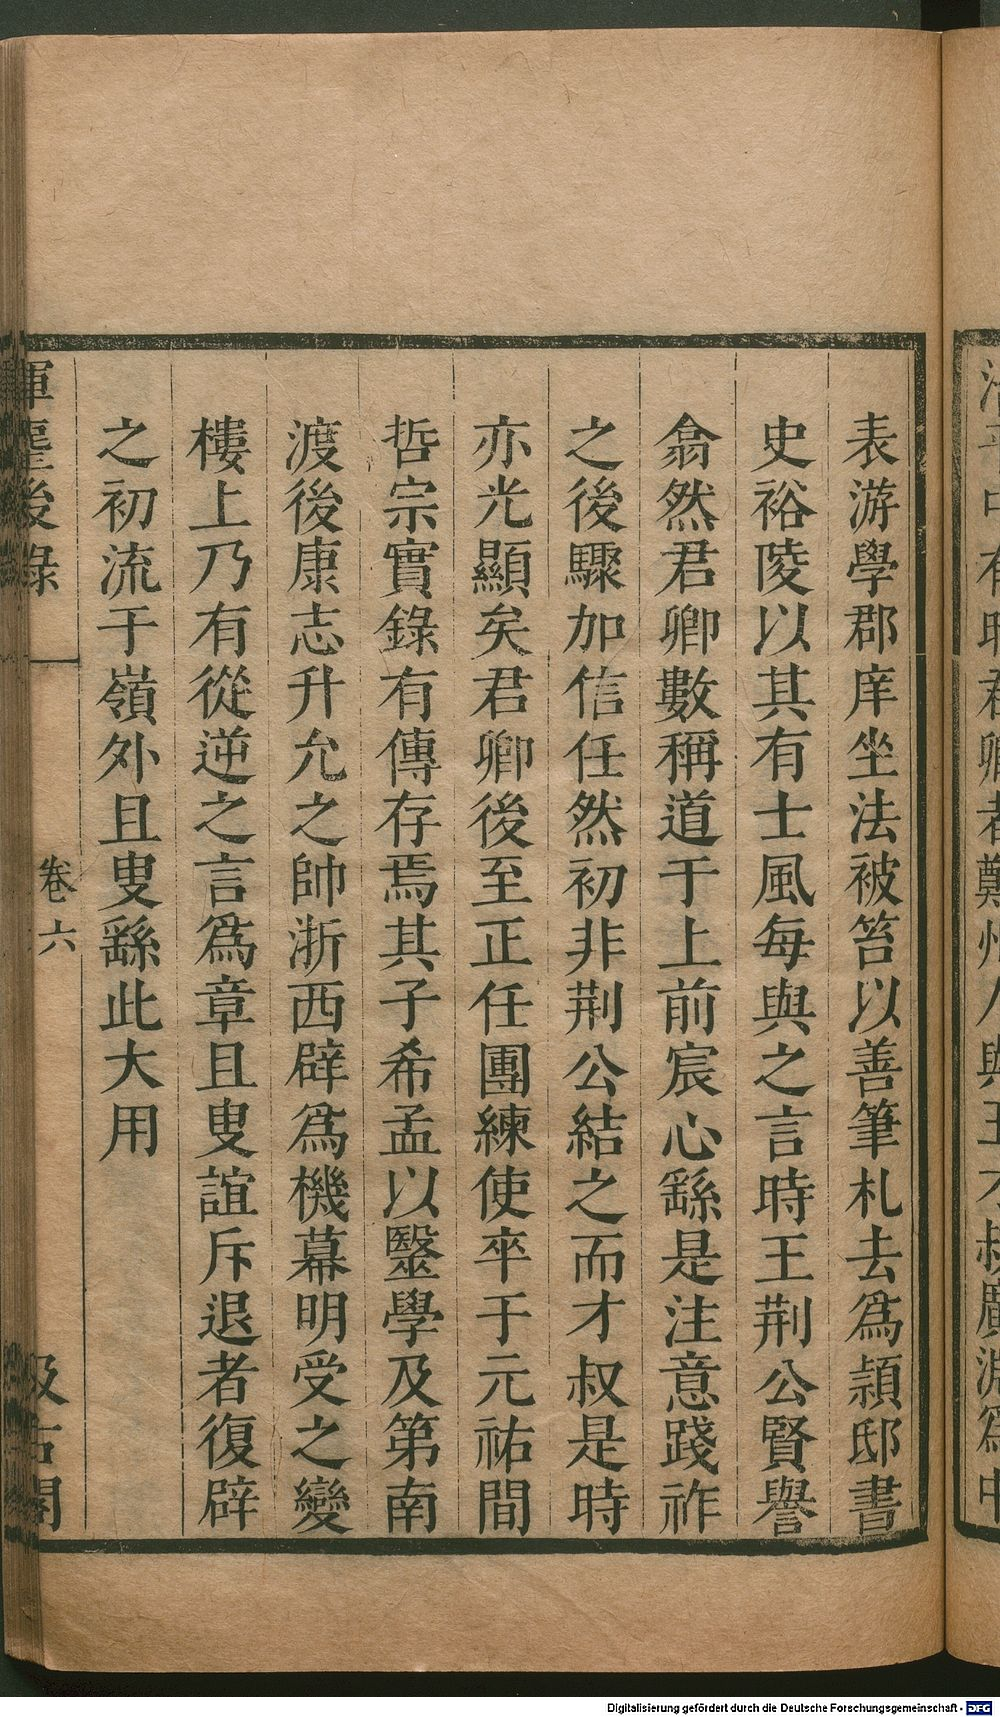 表游學郡庠坐法被笞以善筆札去爲潁邸書
史裕陵以其有士風每與之言時王荆公賢譽
翕然君卿數稱道于上前宸心繇是注意踐祚
之後驟加信任然初非荆公結之而才叔是時
亦光顯矣君卿後至正任團練使卒于元祐間
哲宗實錄有傳存焉其子希孟以毉學及第南
渡後康志升允之帥浙西辟爲機幕明受之變
樓上乃有從逆之言爲章且叟誼斥退者復辟
之初流于嶺外且叟繇此大用
揮麈後錄 卷六 汲古閣
Digitalisierung gefördert durch die Deutsche Forschungsgemeinschaft - DFG